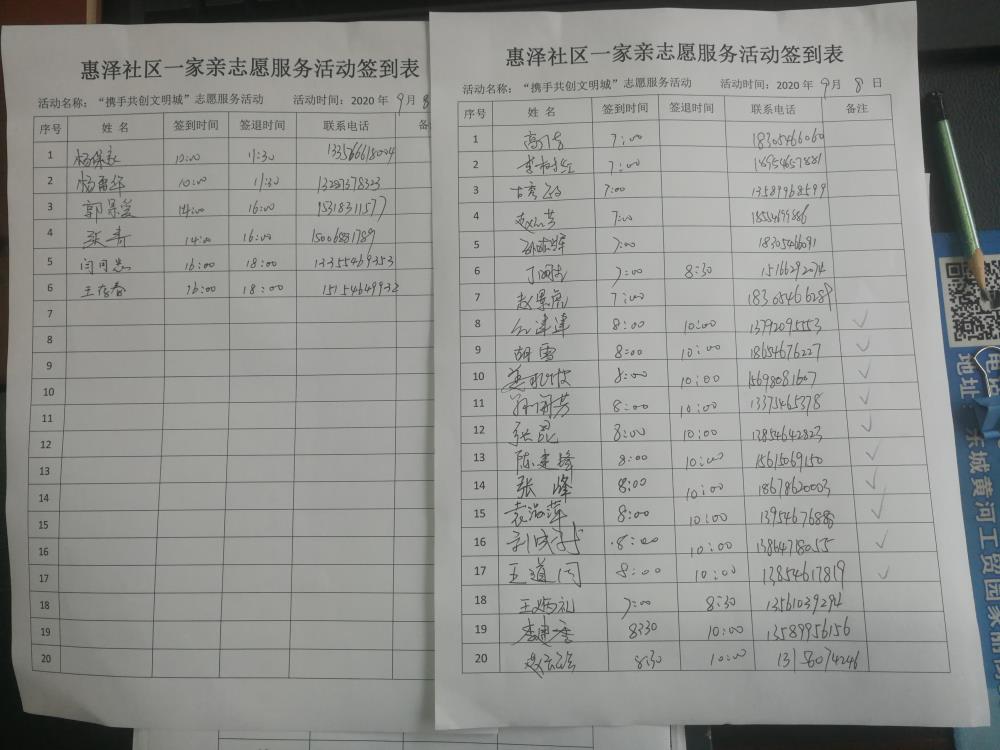 惠泽社区一家亲志愿服务活动签到表
活动名称：“携手共创文明城”志愿服务活动 活动时间：2020 年 9月 8
序号 姓 名 签到时间 签退时间 联系电话
1 10:00 11:30
2 10:00 11:30 13287378323
3 郭景爱 14:00 16:00 15318311577
4 张青 14:00 16:00 15006881789
5 闫同忠 16:00 18:00 13355469353
6 王存春 16:00 18:00 15154649932
7
8
9
10
11
12
13
14
15
16
17
18
19
20
惠泽社区一家亲志愿服务活动签到表
活动名称：“携手共创文明城”志愿服务活动 活动时间：2020 年 9月 8 日
序号 姓 名 签到时间 签退时间 联系电话 备注
1 7:00 18305466060
2 7:00 18954657881
3 7:00 13589968599
4 7:00
5 7:00
6 7:00 8:30
7 赵景虎 7:00
8 8:00 10:00 13792095553
9 胡雪 8:00 10:00 18654676227
10 8:00 10:00 15698081607
11 8:00 10:00 13375465378
12 张昆 8:00 10:00 13854642823
13 陈建峰 8:00 10:00 15615069150
14 张峰 8:00 10:00 18678620003
15 8:00 10:00
16 8:00 10:00 13864718055
17 王道同 8:00 10:00 13854617819
18 王炳礼 7:00 8:30 13561039294
19 8:30 10:00 13589956156
20 8:30 10:00 13156074246
电话
地址
东城黄河工贸园家丽